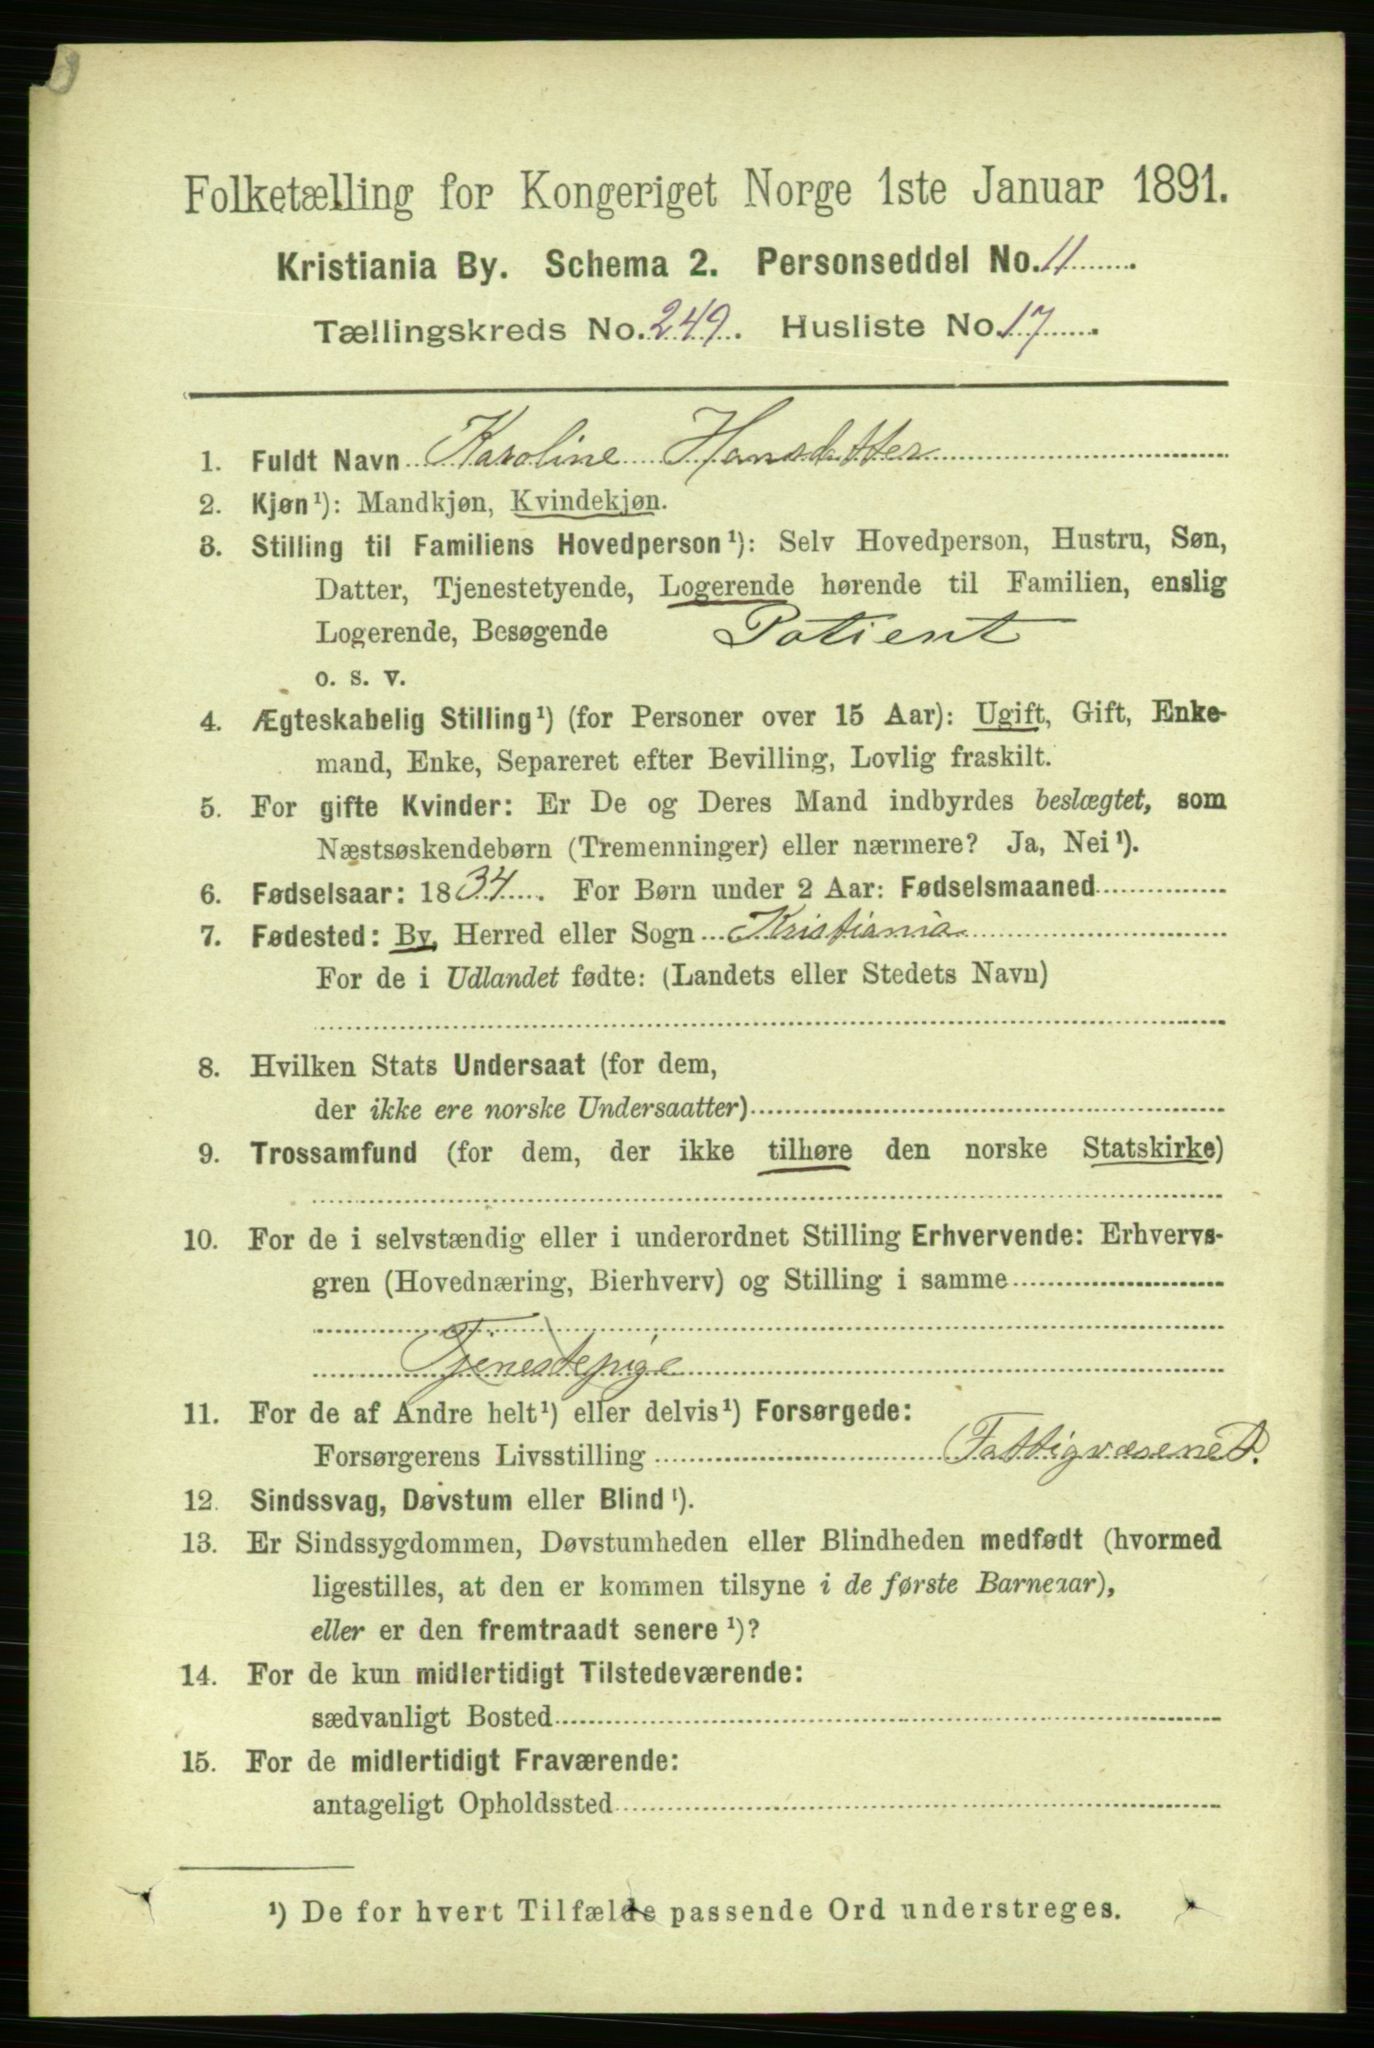 Folketælling for Kongeriget Norge 1ste Januar 1891.
Kristiania By. Schema 2. Personseddel No. 11
Tællingskreds No. 249. Husliste No. 17
1. Fuldt Navn Karoline Hansdatter
2. Kjøn¹): Mandkjøn, Kvindekjøn.
3. Stilling til Familiens Hovedperson¹): Selv Hovedperson, Hustru, Søn,
Datter, Tjenestetyende, Logerende hørende til Familien, enslig
Logerende, Besøgende Patient
o. s. v.
4. Ægteskabelig Stilling¹) (for Personer over 15 Aar): Ugift, Gift, Enke-
mand, Enke, Separeret efter Bevilling, Lovlig fraskilt.
5. For gifte Kvinder: Er De og Deres Mand indbyrdes beslægtet, som
Næstsøskendebørn (Tremenninger) eller nærmere? Ja, Nei¹).
6. Fødselsaar: 1834. For Børn under 2 Aar: Fødselsmaaned
7. Fødested: By, Herred eller Sogn Kristiania
For de i Udlandet fødte: (Landets eller Stedets Navn)
8. Hvilken Stats Undersaat (for dem,
der ikke ere norske Undersaatter)
9. Trossamfund (for dem, der ikke tilhøre den norske Statskirke)
10. For de i selvstændig eller i underordnet Stilling Erhvervende: Erhvervs-
gren (Hovednæring, Bierhverv) og Stilling i samme
Tjenestepige
11. For de af Andre helt¹) eller delvis¹) Forsørgede:
Forsørgerens Livsstilling Fattigvæsenet.
12. Sindssvag, Døvstum eller Blind¹).
13. Er Sindssygdommen, Døvstumheden eller Blindheden medfødt (hvormed
ligestilles, at den er kommen tilsyne i de første Barneaar),
eller er den fremtraadt senere¹)?
14. For de kun midlertidigt Tilstedeværende:
sædvanligt Bosted
15. For de midlertidigt Fraværende:
antageligt Opholdssted
¹) De for hvert Tilfælde passende Ord understreges.